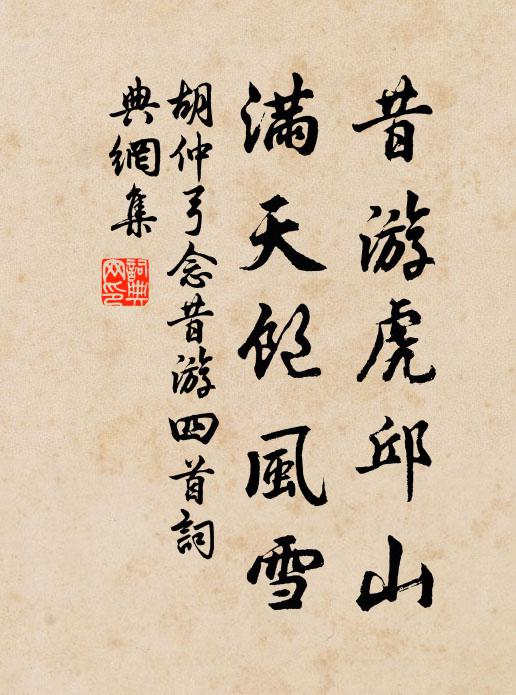 昔游虎邱山
滿天飽風雪
胡仲弓念昔游四首詞
典網集
詞典網印